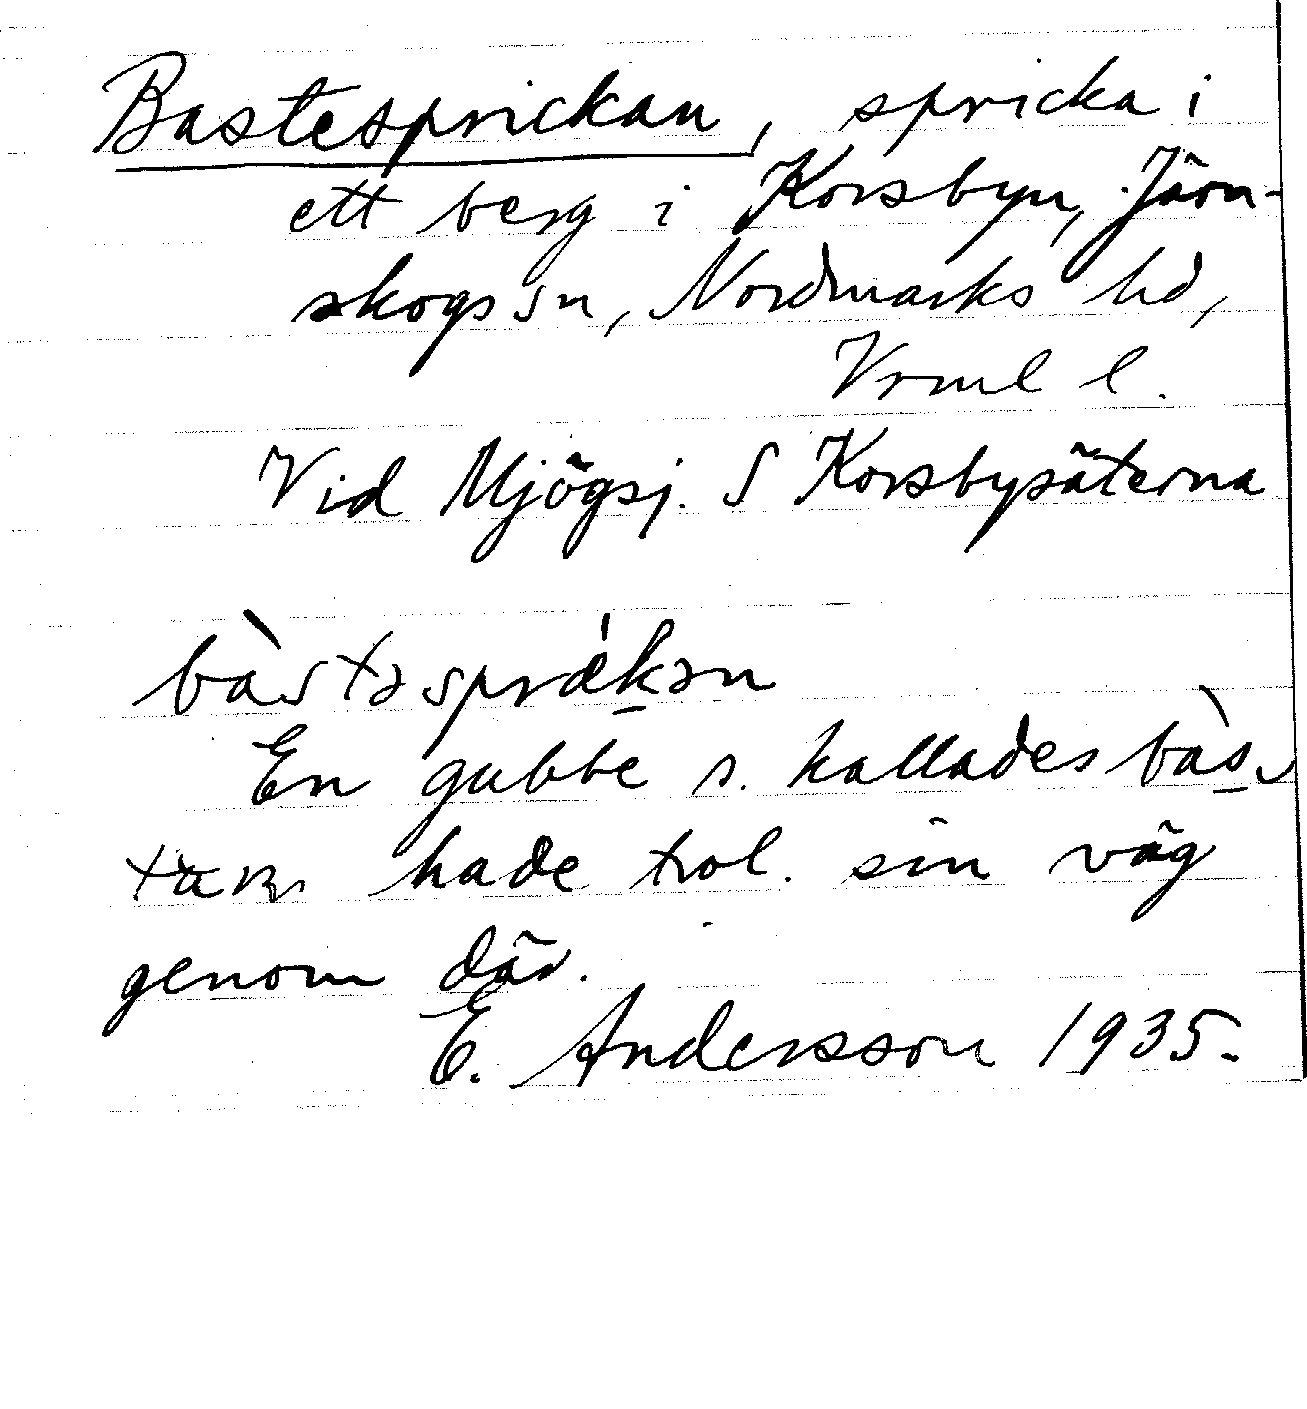 Bastesprickan, spricka i
ett berg i Korsbyn, Järn-
skogs sn, Nordmarks hd,
Vrml l.
Vid Mjögsj. S Korsbysäterna
bàstəsprǽkən
En gubbe s. kallades bàs-
hade trol. sin väg
genom där.
E. Andersson 1935.